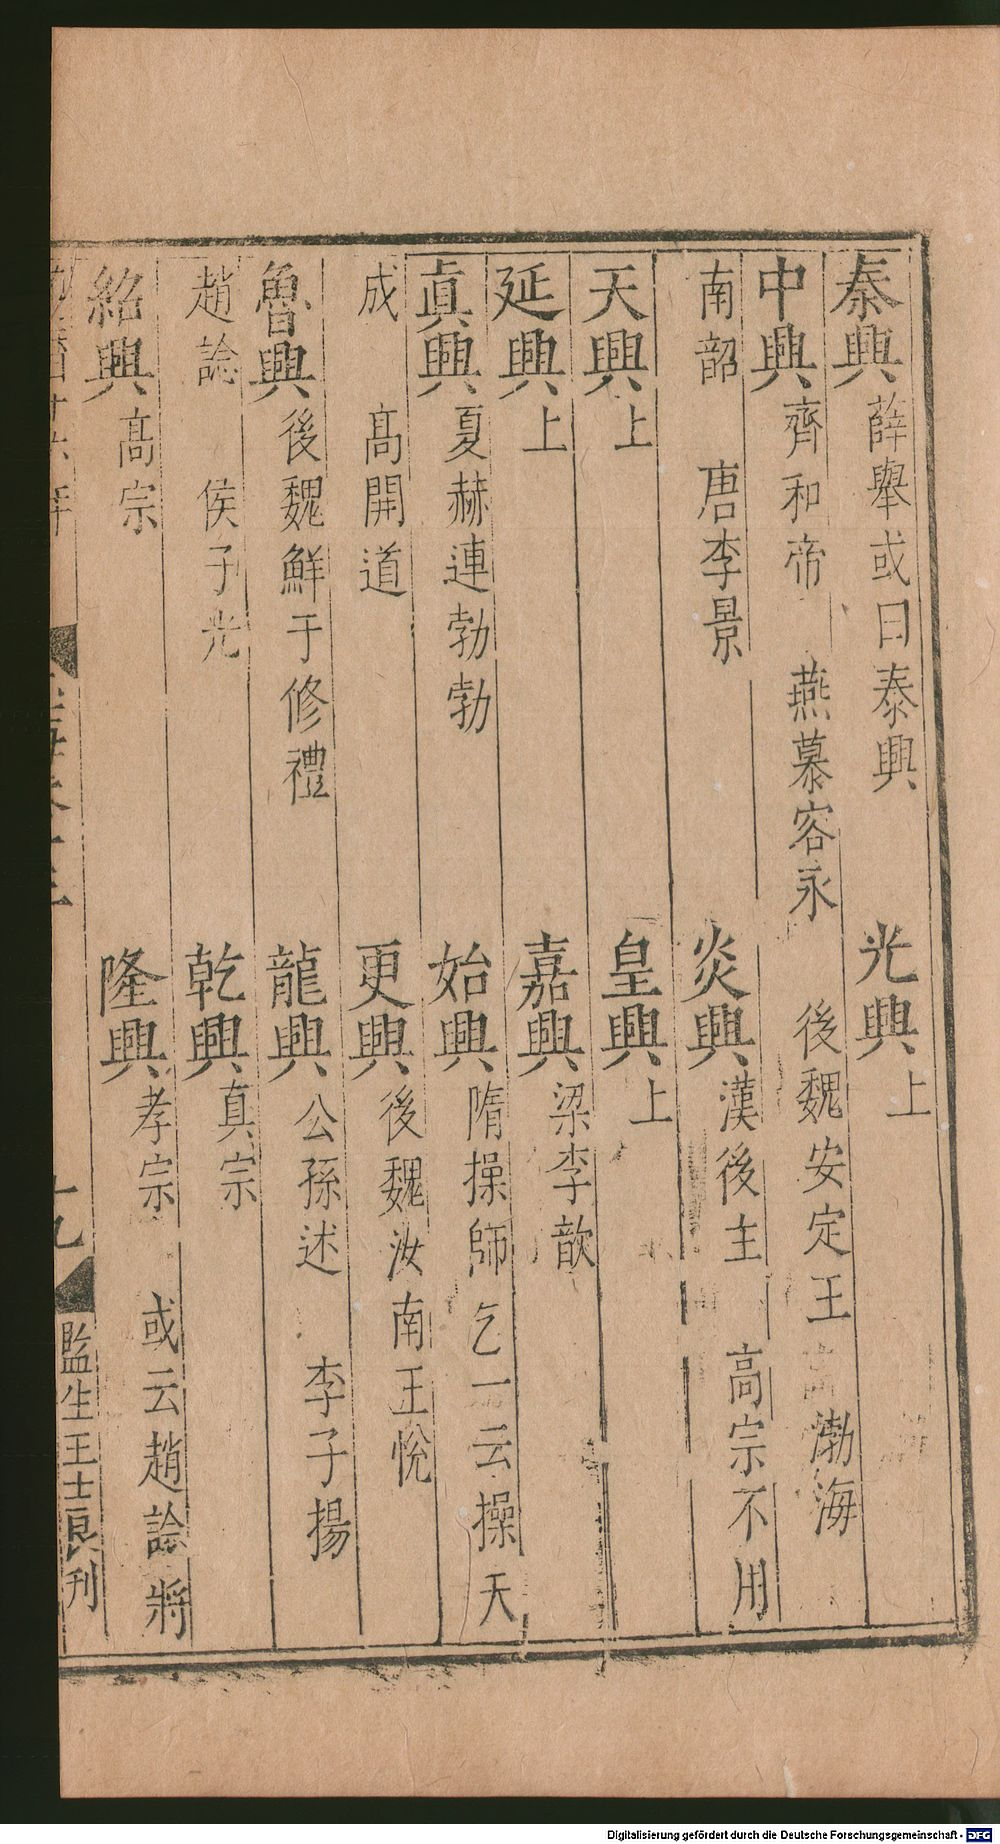 秦興薛舉或曰泰興　光興上
中興齊和帝　燕慕容永　後魏安定王　渤海
南韶　唐李景　炎興漢後主　高宗不用
天興上　皇興上
延興上　嘉興梁李歆
真興夏赫連勃勃　始興隋操師乞一云操天
成　高開道　更興後魏汝南王悅
魯興後魏鮮于修禮　龍興公孫述　李子揚
趙諗　侯子光　乾興真宗
紹興高宗　隆興孝宗　或云趙諗將
九
監生王士良刊
Digitalisierung gefördert durch die Deutsche Forschungsgemeinschaft - DFG